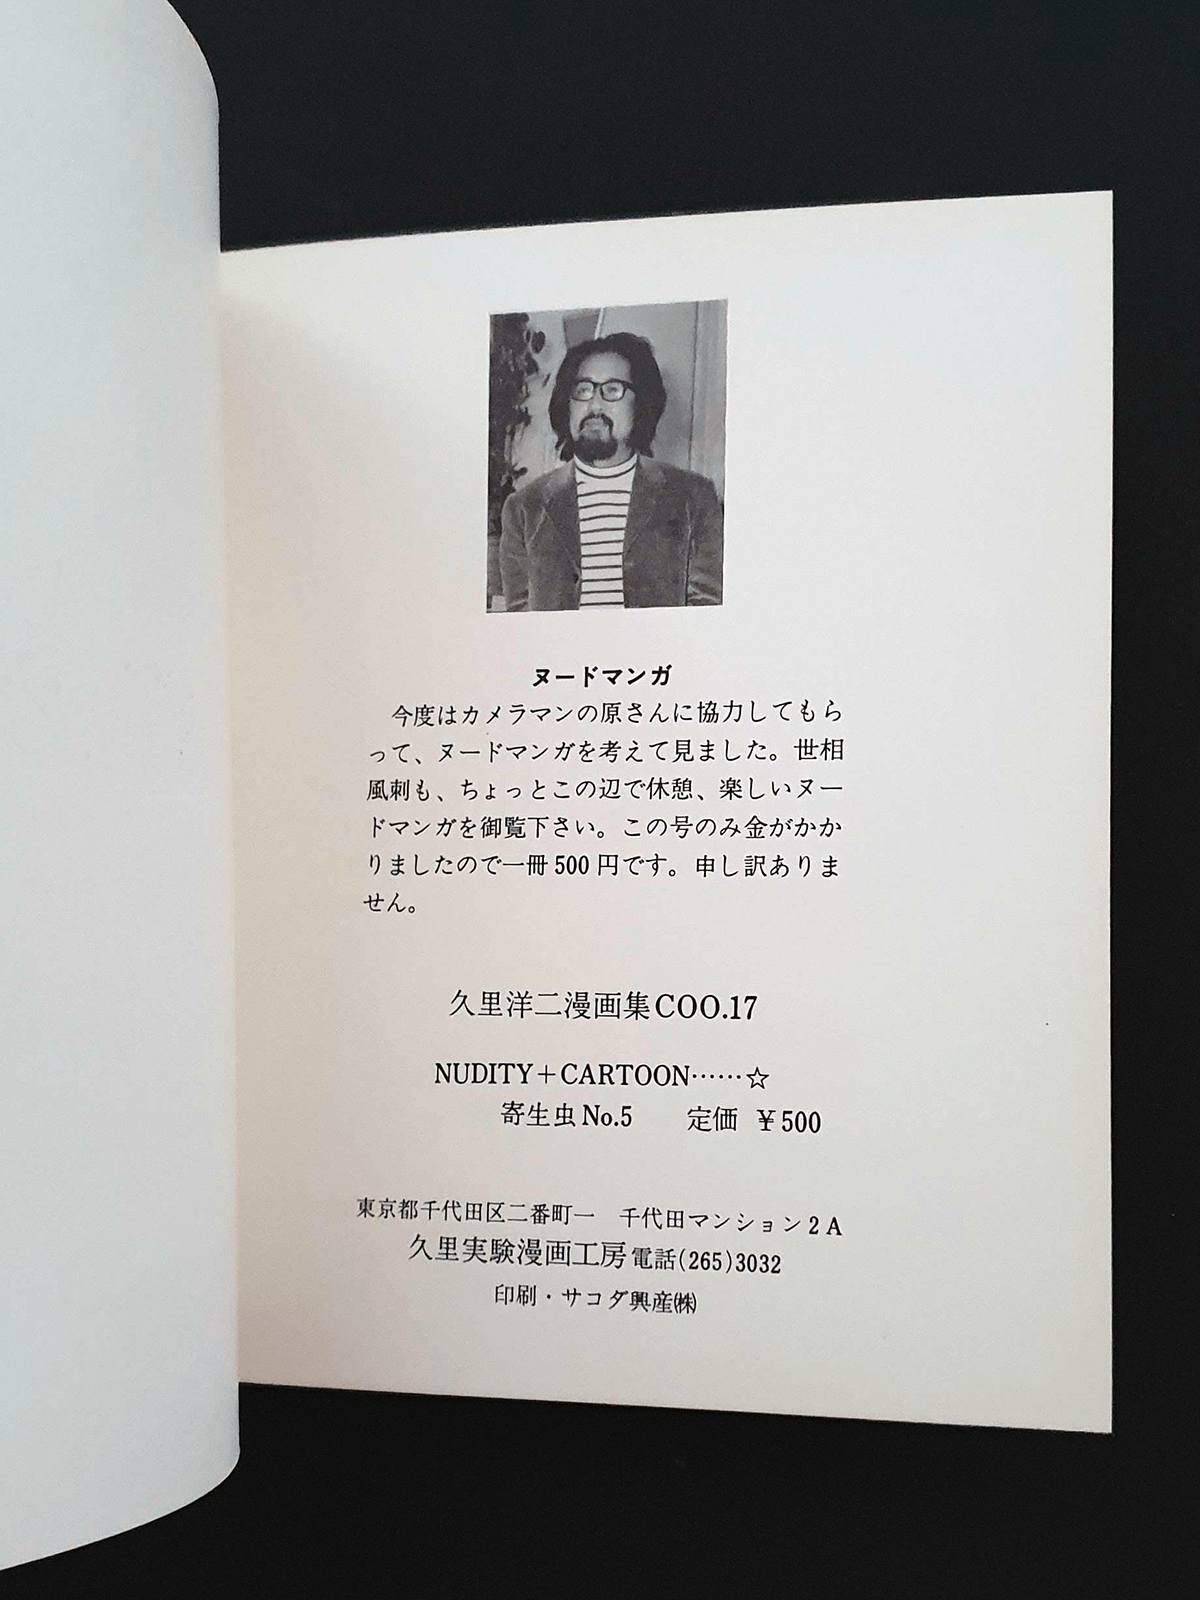 ヌードマンガ
今度はカメラマンの原さんに協力してもら
って、ヌードマンガを考えて見ました。世相
風刺も、ちょっとこの辺で休憩、楽しいヌー
ドマンガを御覧下さい。この号のみ金がかか
りましたので一冊500円です。申し訳ありま
せん。
久里洋二漫画集COO.17
NUDITY+CARTOON……☆
寄生虫No.5　定価 ￥500
東京都千代田区二番町一　千代田マンション2A
久里実験漫画工房電話(265)3032
印刷・サコダ興産㈱